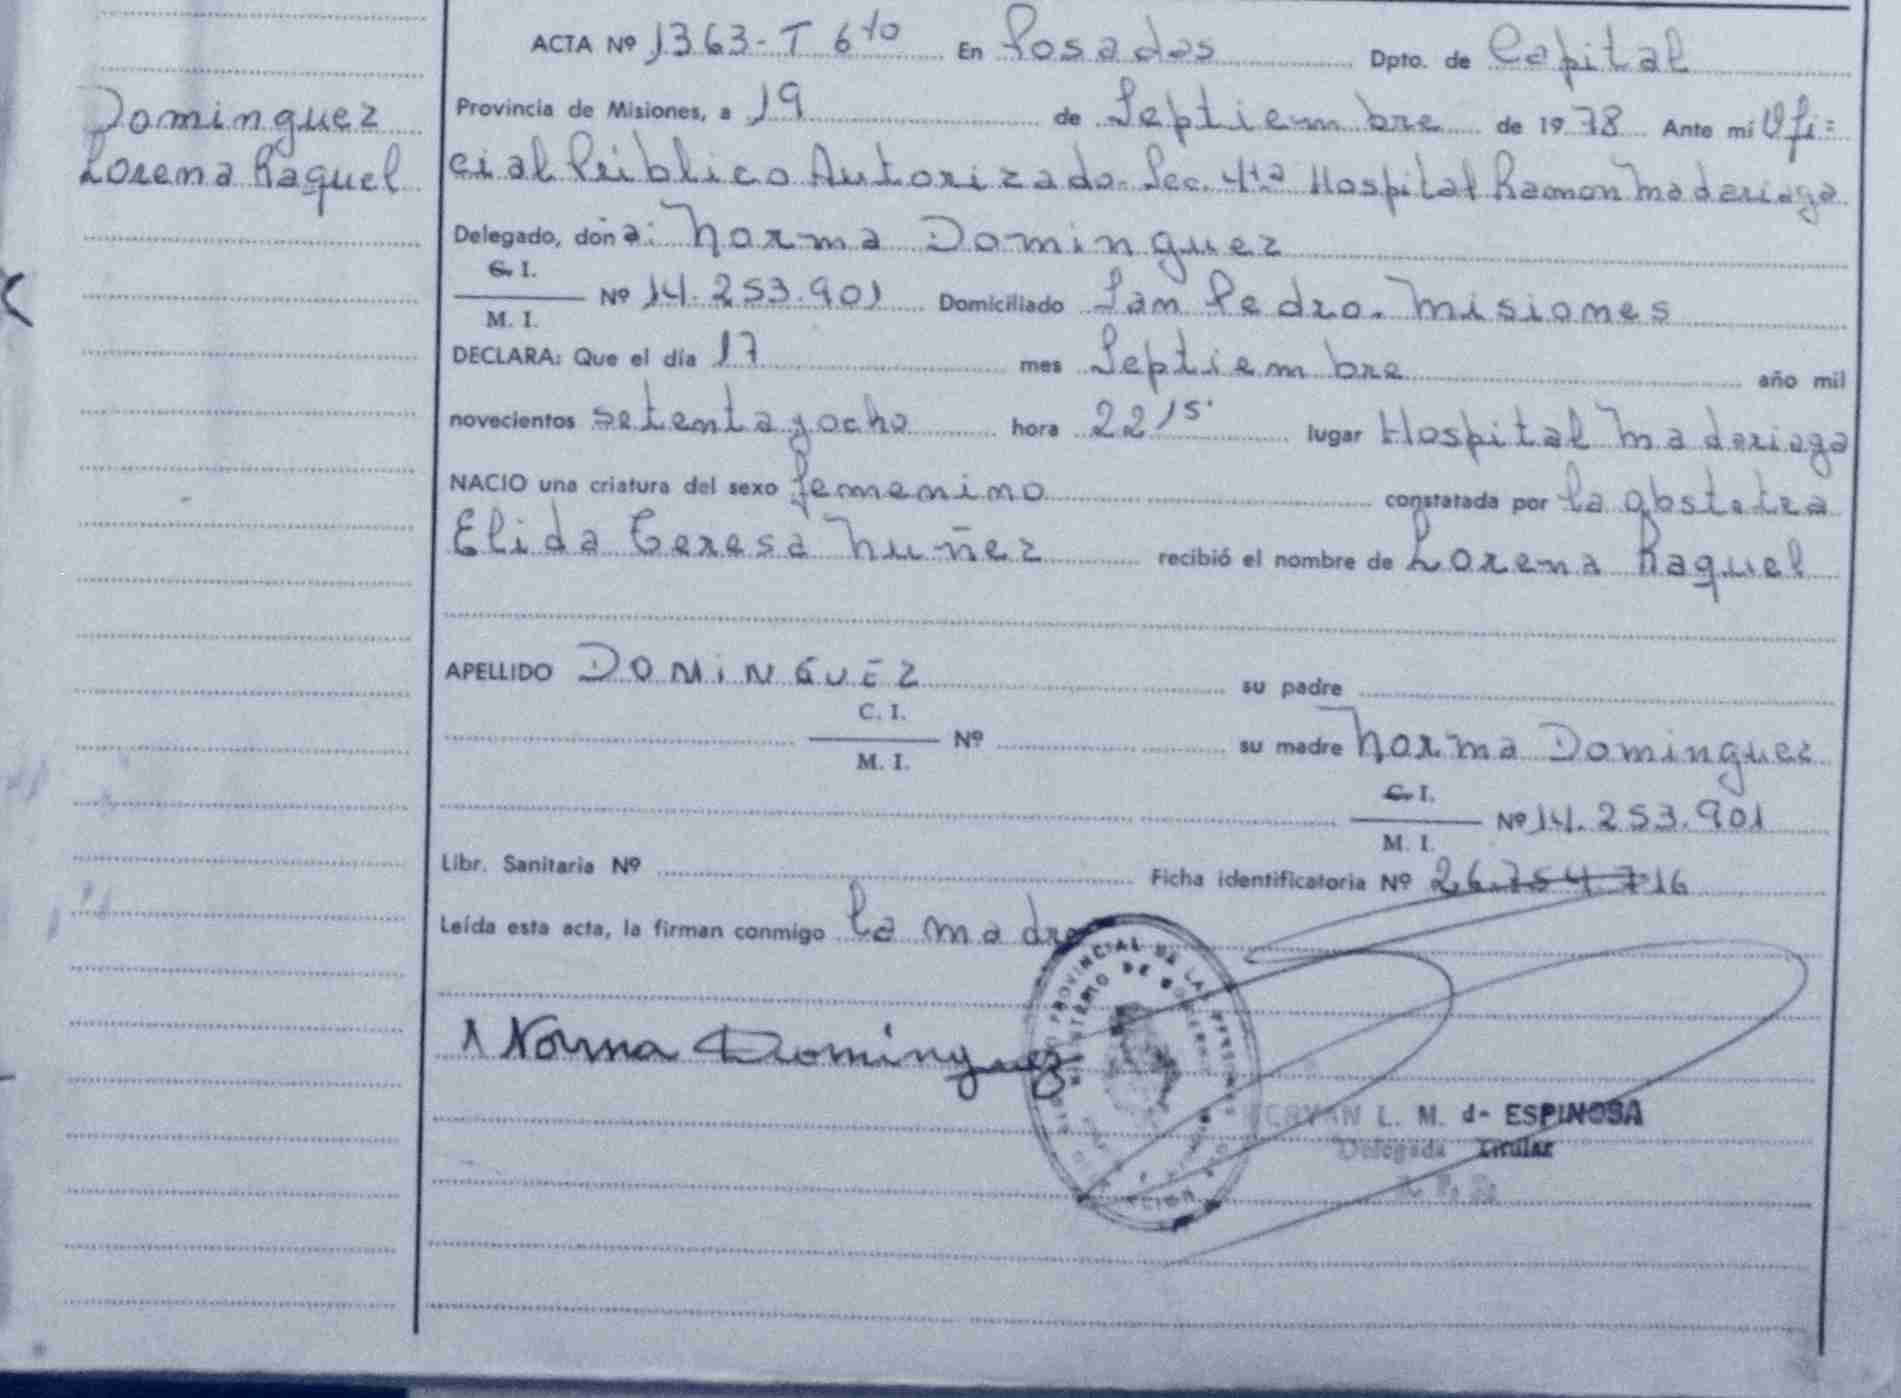 Dominguez
Lorena Raquel
ACTA Nº 1363 - T 6to En Posadas Dpto. de Capital
Provincia de Misiones, a 19 de Septiembre de 1978 Ante mí Ofi=
cial Público Autorizado. Sec. 4ta Hospital Ramon Madariaga
Delegado, doña: Norma Dominguez
C. I.
M. I. Nº 14.253.901 Domiciliado San Pedro. Misiones
DECLARA: Que el día 17 mes Septiembre año mil
novecientos setenta y ocho hora 22 15' lugar Hospital Madariaga
NACIO una criatura del sexo femenino constatada por la obstetra
Elida Teresa Nuñez recibió el nombre de Lorena Raquel
APELLIDO DOMINGUEZ su padre
C. I.
M. I. Nº su madre Norma Dominguez
C. I.
M. I. Nº 14.253.901
Libr. Sanitaria Nº Ficha identificatoria Nº 26.754.716
Leída esta acta, la firman conmigo la madre
Norma Dominguez
PROVINCIAL DE LAS PERSONAS
MINISTERIO DE GOBIERNO
L. M. de ESPINOSA
Delegada Titular